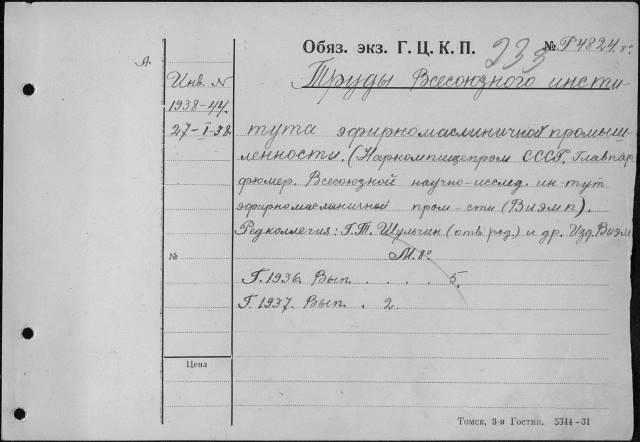 Обяз. экз. Г. Ц. К. П. 233 № Г4824. 8°
А.
Инв. N
1938-44.
27-I-38.
Труды Всесоюзного инсти-
тута эфирномасличной промыш-
ленности. (Наркомпищепром СССР. Главпар-
фюмер. Всесоюзной научно-исслед. ин-тут
эфирномасличной пром-сти (Виэмп).
Редколлегия: Г.Т. Шульгин (отв. ред.) и др. Изд. Виэм
№ М. 8°
Г. 1936. Вып. . . . . 5.
Г. 1937. Вып. . 2.
Цена
Томск, 3-я Гостип. 5344-31